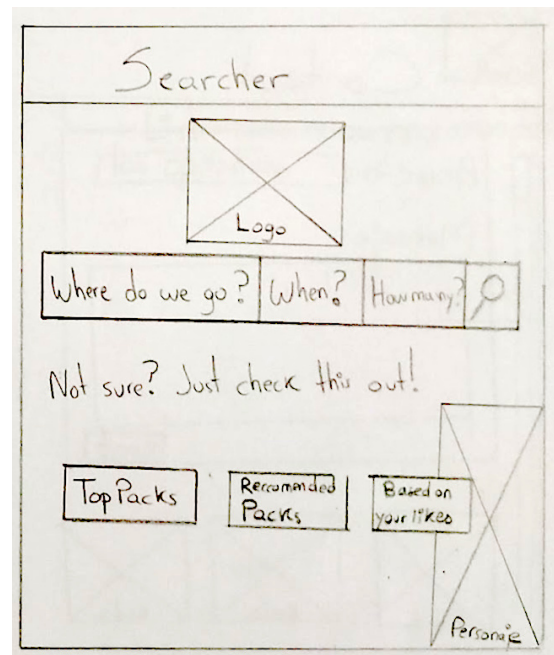 Searcher
Logo
Where do we go? When? How many?
Not sure? Just check this out!
Top Packs
Recommended
Packs
Based on
your likes
Personaje